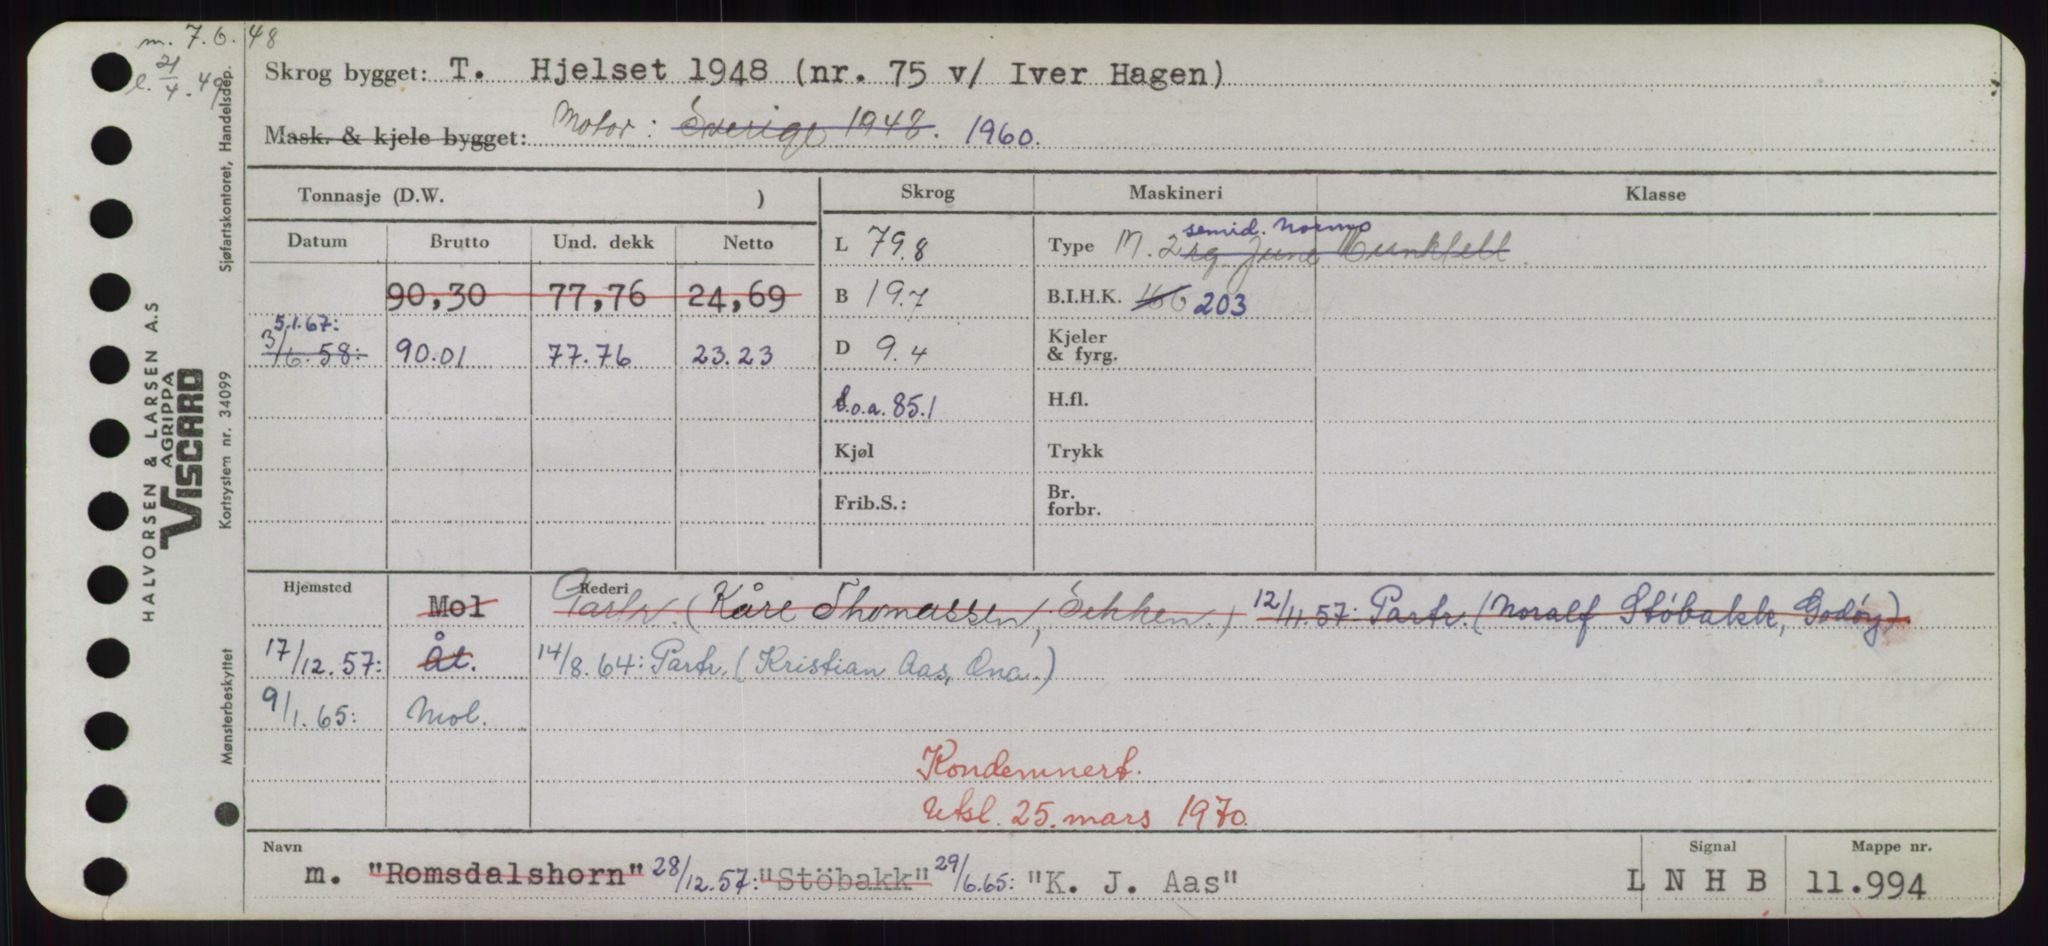 m. 7.6.48
l. 21/4.49
Skrog bygget: T. Hjelset 1948 (nr. 75 v/ Iver Hagen)
Mask. & kjele bygget: Motor: Sverige 1948. 1960.
Tonnasje (D.W. )
Skrog
Maskineri
Klasse
Datum Brutto Und. dekk Netto
L 79.8
Type M. 2 semid. Normo
rg June Munktell
90,30 77,76 24,69
B 19.7
B.I.H.K. 166 203
5.1.67:
3/6.58: 90.01 77.76 23.23
D 9.4
Kjeler
& fyrg.
l.o.a. 85.1
H.fl.
Kjøl
Trykk
Frib.S.:
Br.
forbr.
Hjemsted
Rederi
Mol Partr. (Kåre Thomassen, Sekken.) 12/11.57: Partr. (Noralf Stöbakk, Godöy)
17/12.57: Ål. 14/8.64: Partr. (Kristian Aas, Ona.)
9/1.65: Mol.
Kondemnert.
Utsl. 25. mars 1970.
Navn
Signal
Mappe nr.
m. "Romsdalshorn" 28/12.57: "Stöbakk" 29/6.65: "K. J. Aas"
L N H B
11.994
HALVORSEN & LARSEN A.S
AGRIPPA
VISCARD
Mønsterbeskyttet Kortsystem nr. 34099 Sjøfartskontoret, Handelsdep.